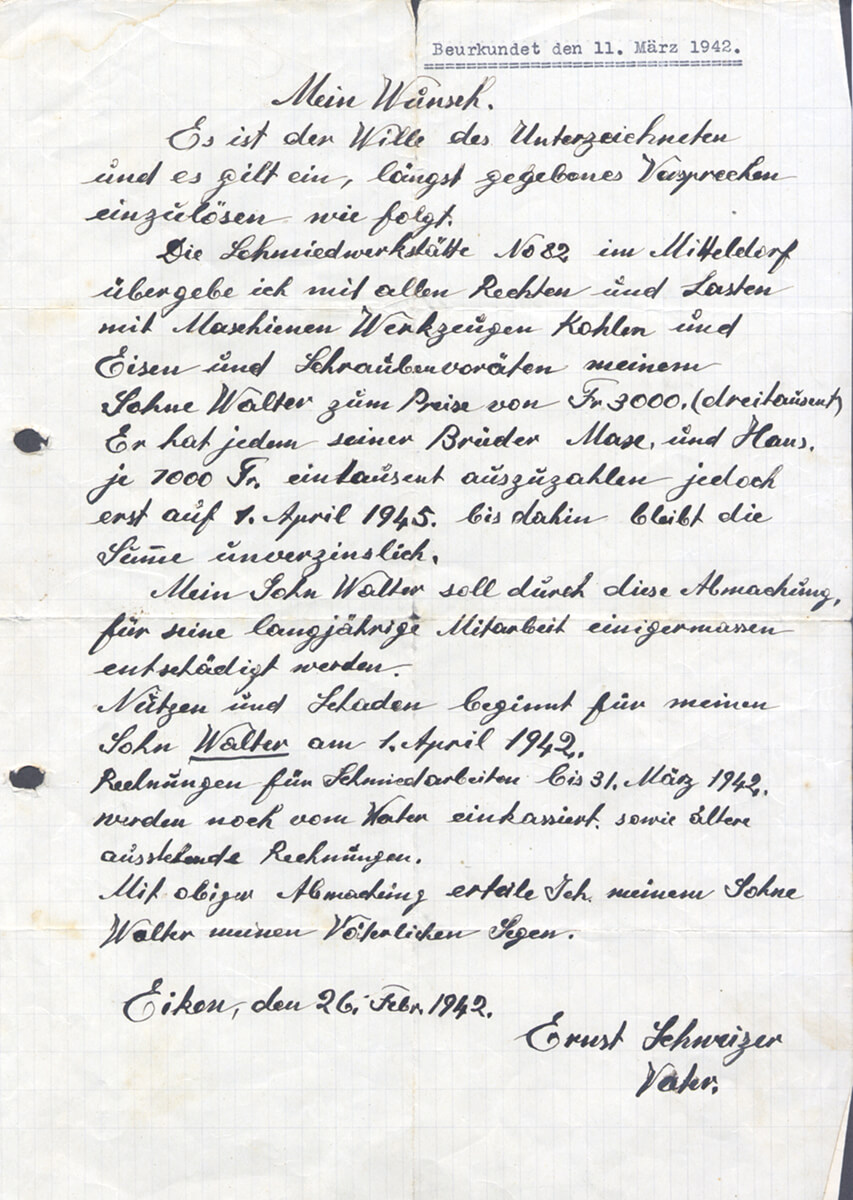 Beurkundet den 11. März 1942.
Mein Wunsch.
Es ist der Wille des Unterzeichneten
und es gilt ein, längst gegebenes Versprechen
einzulösen wie folgt.
Die Schmiedwerkstätte No 82 im Mitteldorf
übergebe ich mit allen Rechten und Lasten
mit Maschienen Werkzeugen Kohlen und
Eisen und Schraubenvoräten meinem
Sohne Walter zum Preise von Fr. 3000. (dreitausent)
Er hat jedem seiner Brüder Max. und Hans.
je 1000 Fr. eintausent auszuzahlen jedoch
erst auf 1. April 1945. bis dahin bleibt die
Sum̄e unverzinslich.
Mein Sohn Walter soll durch diese Abmachung,
für seine langjährige Mitarbeit einigermassen
entschädigt werden.
Nutzen und Schaden beginnt für meinen
Sohn Walter am 1. April 1942.
Rechnungen für Schmiedarbeiten bis 31. März 1942.
werden noch vom Vater einkassiert. sowie ältere
ausstehende Rechnungen.
Mit obiger Abmachung erteile Ich. meinem Sohne
Walter meinen Väterlichen Segen.
Eiken, den 26. Febr. 1942.
Ernst Schweizer
Vater.